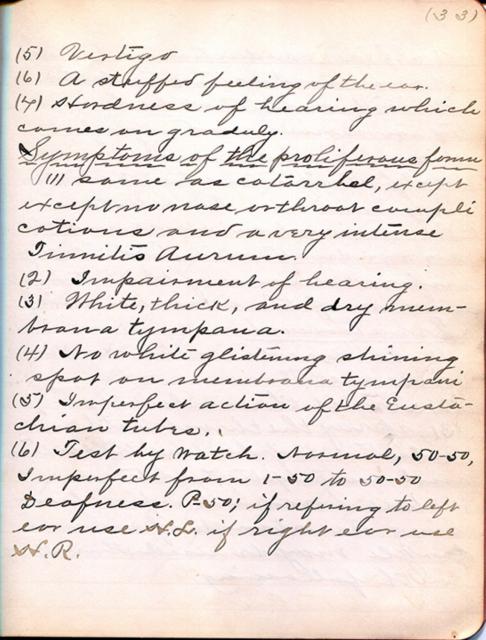 (33)
(5) Vertigo
(6) A stuffed feeling of the ear.
(4) Hardness of hearing which
comes on graduly.
Symptoms of the proliferous form
(1) same as catarrhel, except
except no nose or throat compli
cations and a very intense
Tinnitis Aurum.
(2) Impairment of hearing.
(3) White, thick, and dry mem-
brana tympana.
(4) No white glistening shining
spot on membrana tympani
(5) Imperfect action of the Eusta-
chian tubes.
(6) Test by Watch. Normal, 50-50,
Imperfect from 1-50 to 50-50
Deafness. P-50; if refiring to left
ear use H.L. if right ear use
H.R.